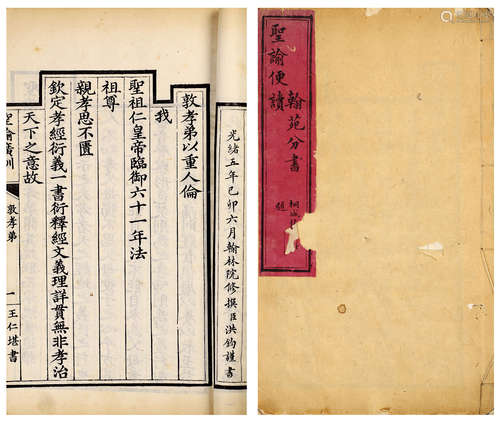 光緒五年己卯六月翰林院修撰臣洪鈞謹書
敦孝弟以重人倫
我
聖祖仁皇帝臨御六十一年法
祖尊
親孝思不匱
欽定孝經衍義一書衍釋經文義理詳貫無非孝治
天下之意故
聖諭廣訓
敦孝弟
一
王仁堪書
聖諭便讀
翰苑分書
桐城
題